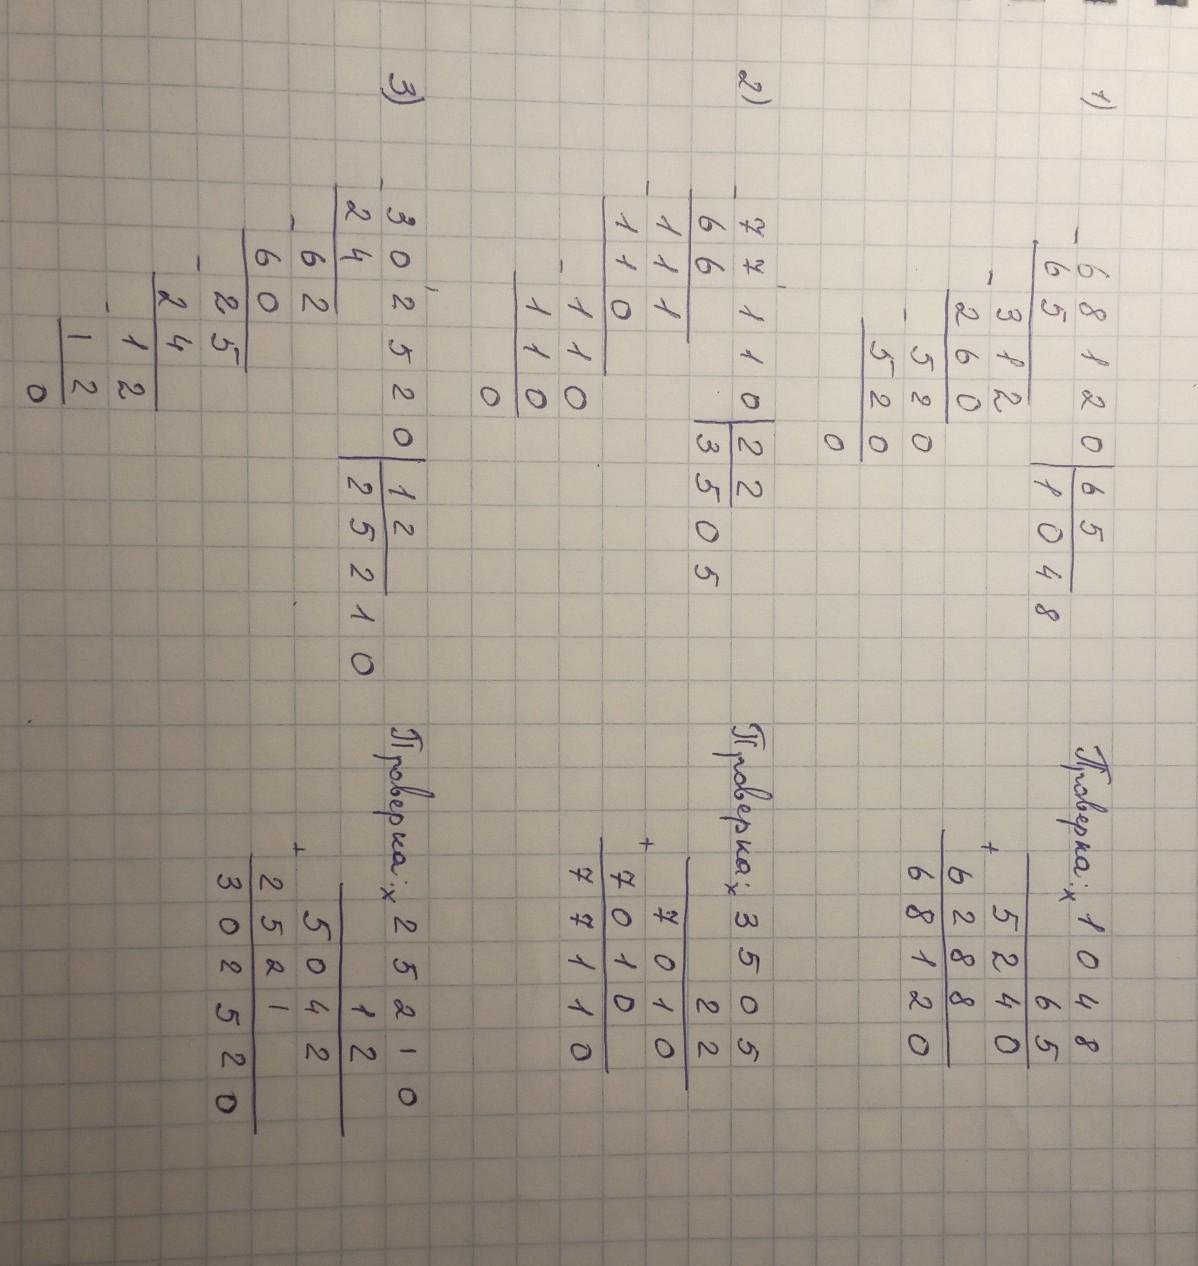 1) - 68120 | 65 Проверка: × 1048
65 | 1048 65
- 312 5240
260 + 6288
- 520 68120
520
0
2) - 77110 | 22 Проверка: × 3505
66 | 3505 22
- 111 7010
110 + 7010
- 110 77110
110
0
3) - 302520 | 12 Проверка: × 25210
24 | 25210 12
- 62 5042
60 + 2521
- 25 302520
24
- 12
12
0